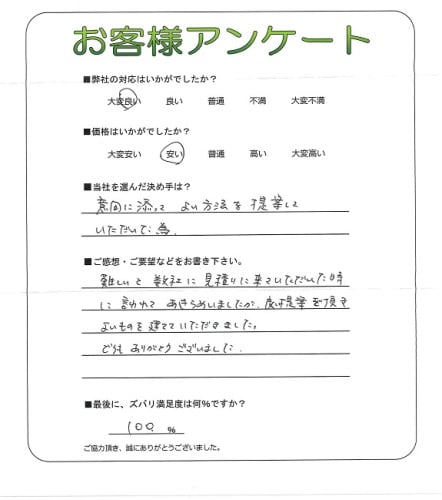 お客様アンケート
■弊社の対応はいかがでしたか?
大変良い 良い 普通 不満 大変不満
■価格はいかがでしたか?
大変安い 安い 普通 高い 大変高い
■当社を選んだ決め手は?
意向に添って よい方法を提案して
いただいた為.
■ご感想・ご要望などをお書き下さい。
難しいと数社に見積りに来ていただいた時
に言われて あきらめいましたが、提案を頂き
よいものを建てていただきました。
どうも ありがとう ございました.
■最後に、ズバリ満足度は何%ですか?
100 %
ご協力頂き、誠にありがとうございました。